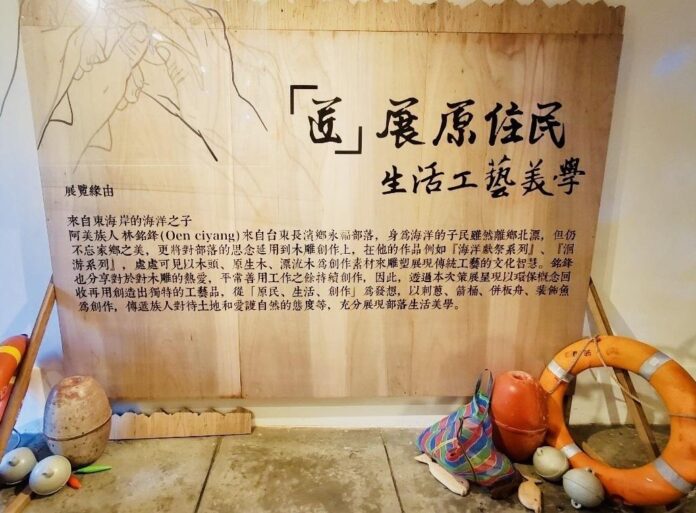 「匠」展原住民
生活工藝美學
展覽緣由
來自東海岸的海洋之子
阿美族人林銘鋒(Oen ciyang)來自台東長濱鄉永福部落，身為海洋的子民雖然離鄉北漂，但仍
不忘家鄉之美，更將對部落的思念延用到木雕創作上，在他的作品例如『海洋獻祭系列』、『洄
游系列』，處處可見以木頭、原生木、漂流木為創作素材來雕塑展現傳統工藝的文化智慧。銘鋒
也分享對於對木雕的熱愛，平常善用工作之餘持續創作，因此，透過本次策展呈現以環保概念回
收再用創造出獨特的工藝品，從「原民、生活、創作」為發想，以刺蔥、箭桶、併板舟、裝飾魚
為創作，傳遞族人對待土地和愛護自然的態度等，充分展現部落生活美學。